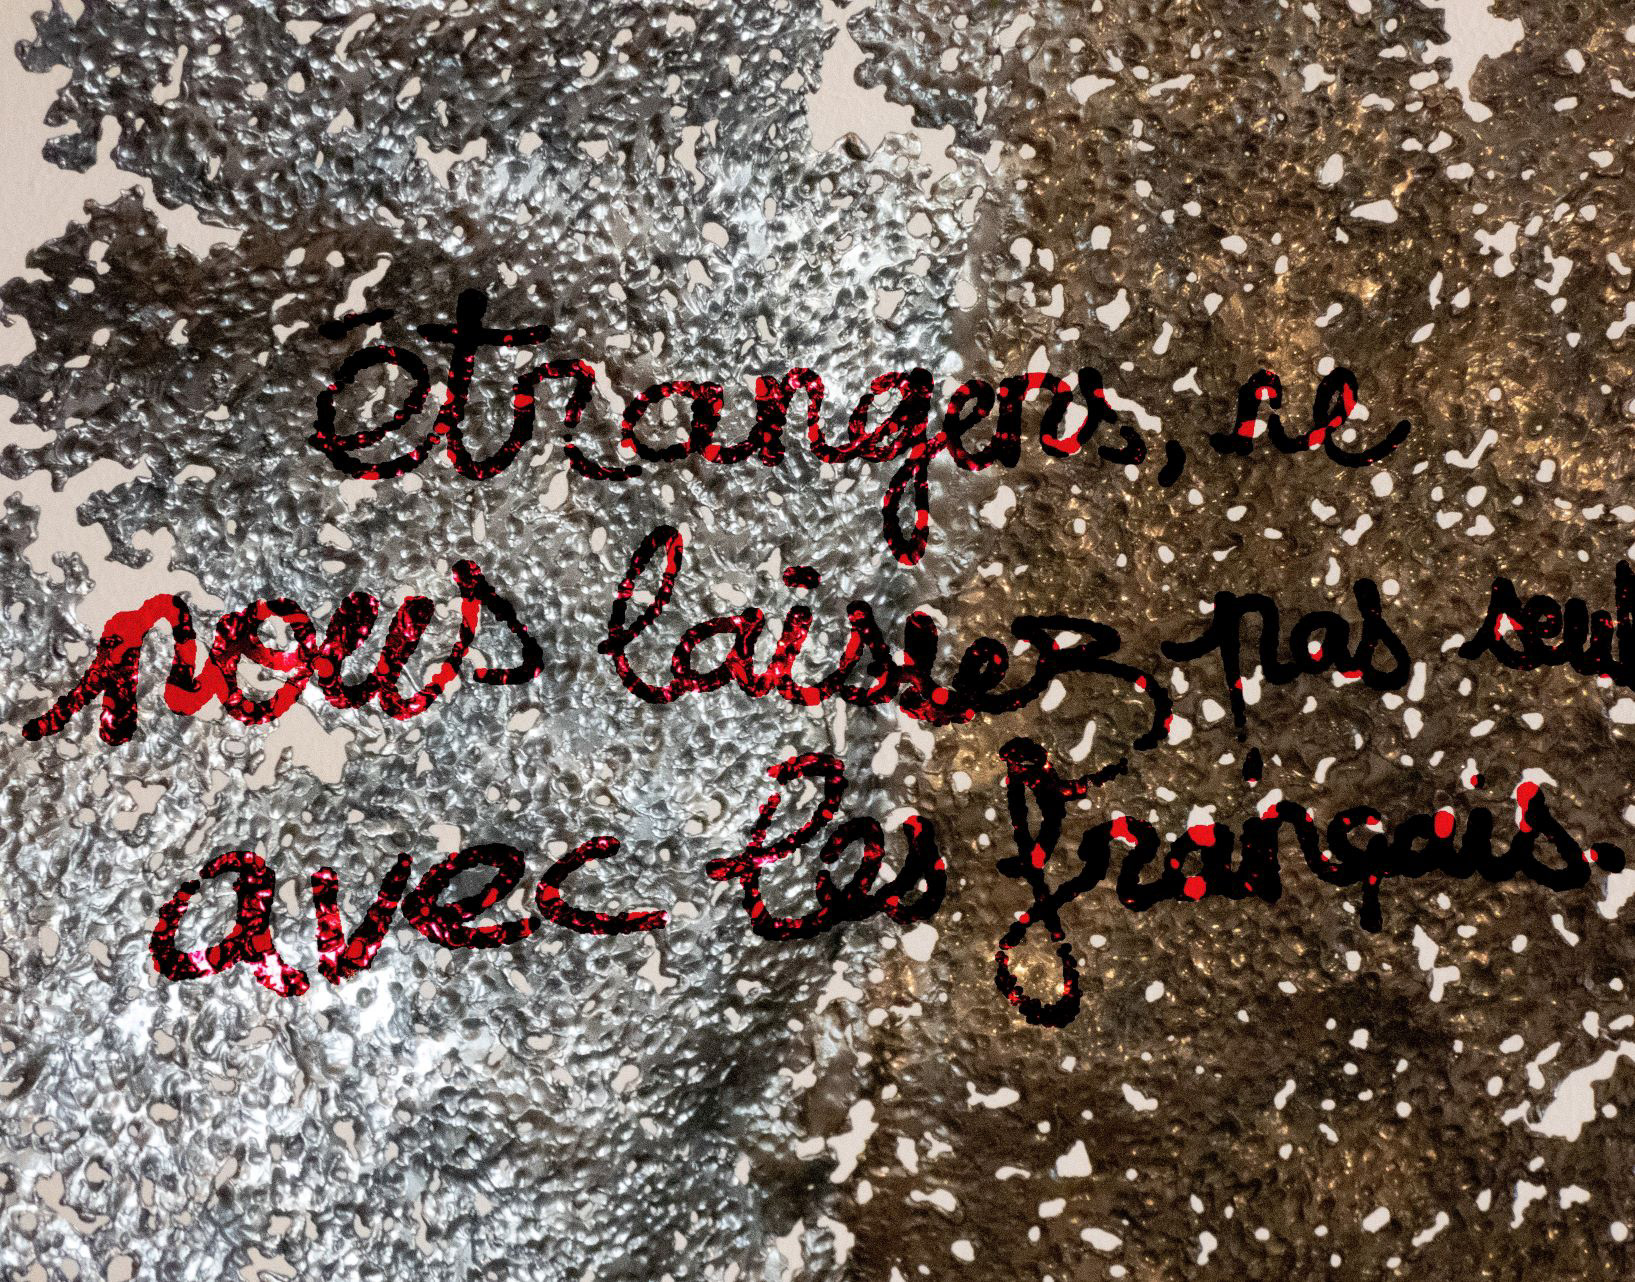 étrangers, ne
nous laissez pas seul
avec les français.